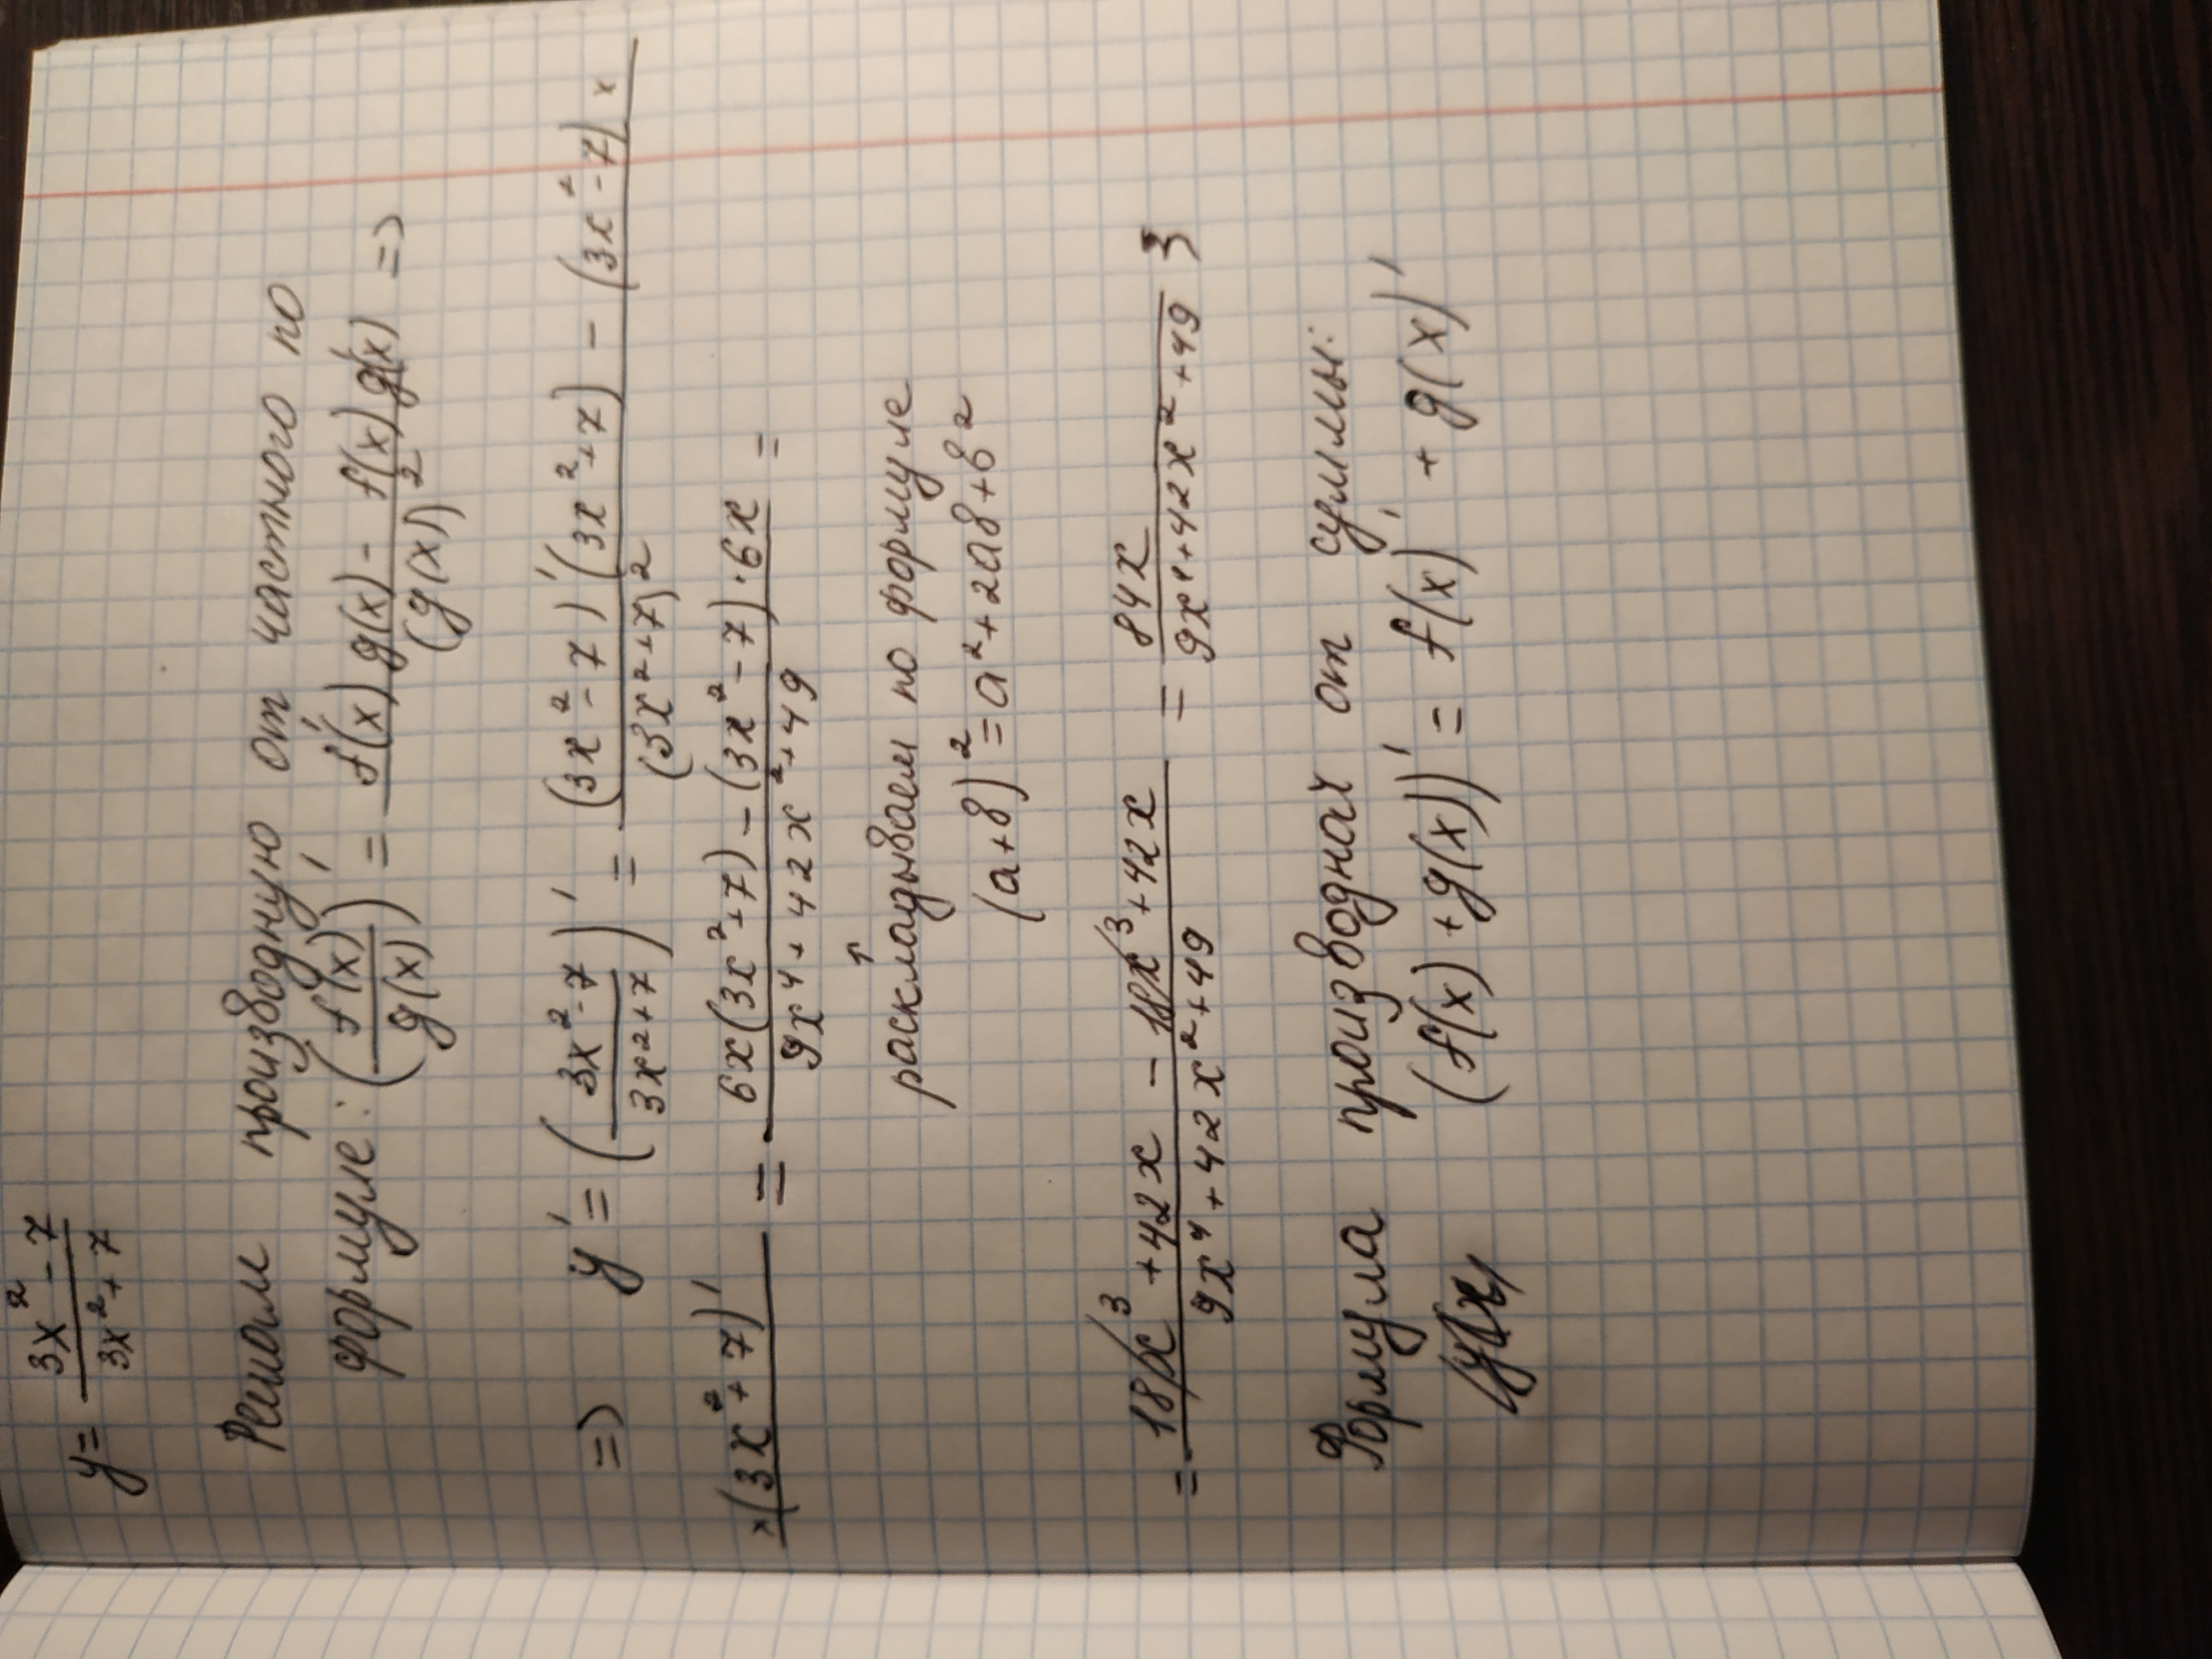 y = (3x² - 7)/(3x² + 7)
Решаем производную от частного по
формуле: (f(x)/g(x))' = (f'(x) g(x) - f(x) g'(x))/(g(x))² =>
=> y' = ((3x² - 7)/(3x² + 7))' = ((3x² - 7)'(3x² + 7) - (3x² - 7) ×
× (3x² + 7)')/(3x² + 7)² = (6x(3x² + 7) - (3x² - 7) · 6x)/(9x⁴ + 42x² + 49) =
↑
раскладываем по формуле
(a+b)² = a² + 2ab + b²
= (18x³ + 42x - 18x³ + 42x)/(9x⁴ + 42x² + 49) = 84x/(9x⁴ + 42x² + 49)
Формула производная от суммы:
(f(x) + g(x))' = f(x)' + g(x)'